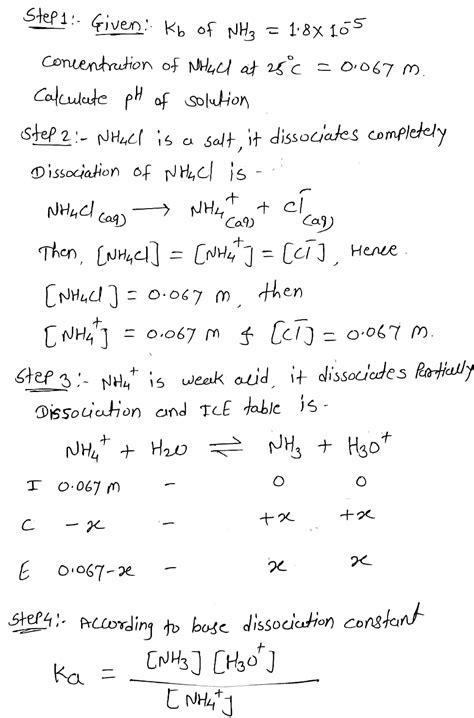 Step 1:- Given:- Kb of NH₃ = 1.8 x 10⁻⁵
Concentration of NH₄Cl at 25°C = 0.067 m.
Calculate pH of solution
Step 2:- NH₄Cl is a salt, it dissociates completely
Dissociation of NH₄Cl is -
NH₄Cl (aq) ⟶ NH₄⁺ (aq) + Cl⁻ (aq)
Then, [NH₄Cl] = [NH₄⁺] = [Cl⁻], Hence.
[NH₄Cl] = 0.067 m, then
[NH₄⁺] = 0.067 m & [Cl⁻] = 0.067 m.
Step 3:- NH₄⁺ is weak acid, it dissociates Partially
Dissociation and ICE table is -
NH₄⁺ + H₂O ⇌ NH₃ + H₃O⁺
I 0.067 m - 0 0
C -x - +x +x
E 0.067-x - x x
Step 4:- According to base dissociation constant
Ka = [NH₃] [H₃O⁺] / [NH₄⁺]